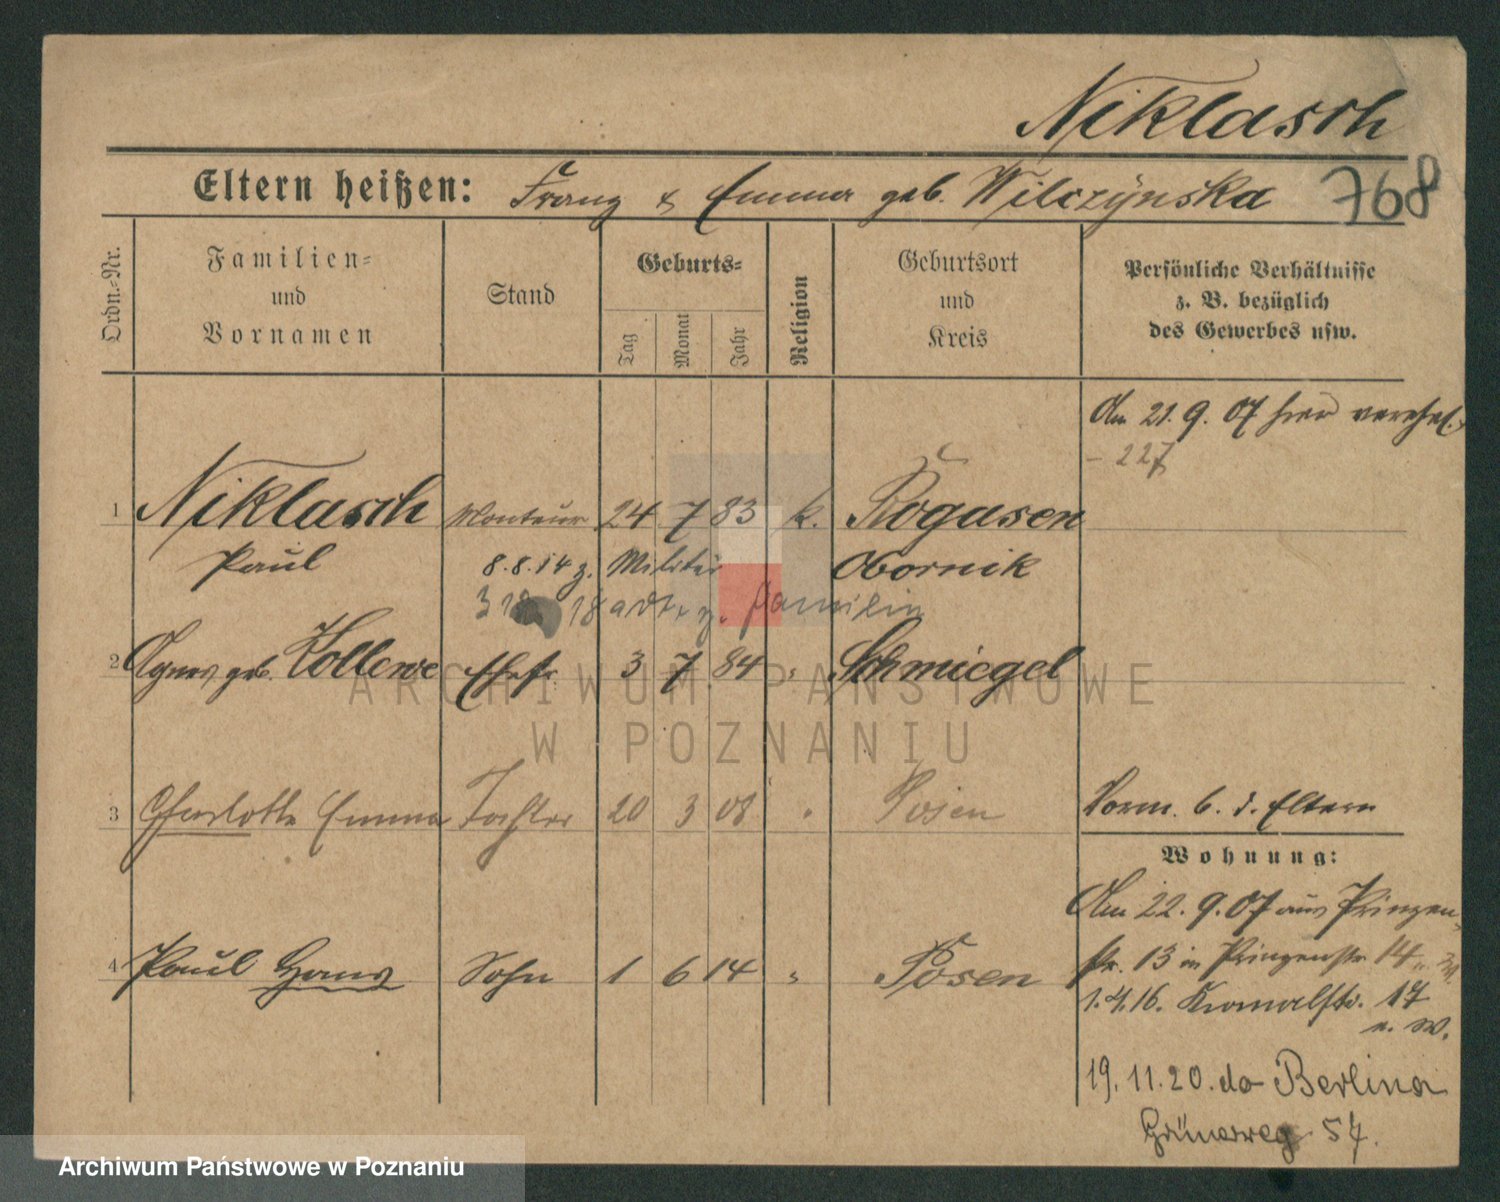 Niklasch
Eltern heißen: Franz & Emma geb. Wilczynska 768
Ordn.-Nr.
Familien-
und
Vornamen
Stand
Geburts-
Tag
Monat
Jahr
Religion
Geburtsort
und
Kreis
Persönliche Verhältnisse
z. B. bezüglich
des Gewerbes usw.
Am 21. 9. 07 hier verehel.
- 227
1 Niklasch Monteur 24 7 83 k. Rogasen
Paul 8.8.14 z. Militär Obornik
18 adr. z. Familie
2 Agnes geb. Kollewe Ehefr. 3 7 84 " Schmiegel
ARCHIWUM PAŃSTWOWE
W POZNANIU
3 Charlotte Emma Tochter 20 3 08 " Posen
Vorm. b. d. Eltern
Wohnung:
Am 22. 9. 07 aus Prinzen-
4 Paul Hans Sohn 1 6 14 " Posen
str. 13 in Prinzenstr. 14
1.4.16. Kromerstr. 17
u. W.
19.11.20. do Berlina
Grünerweg 57.
Archiwum Państwowe w Poznaniu